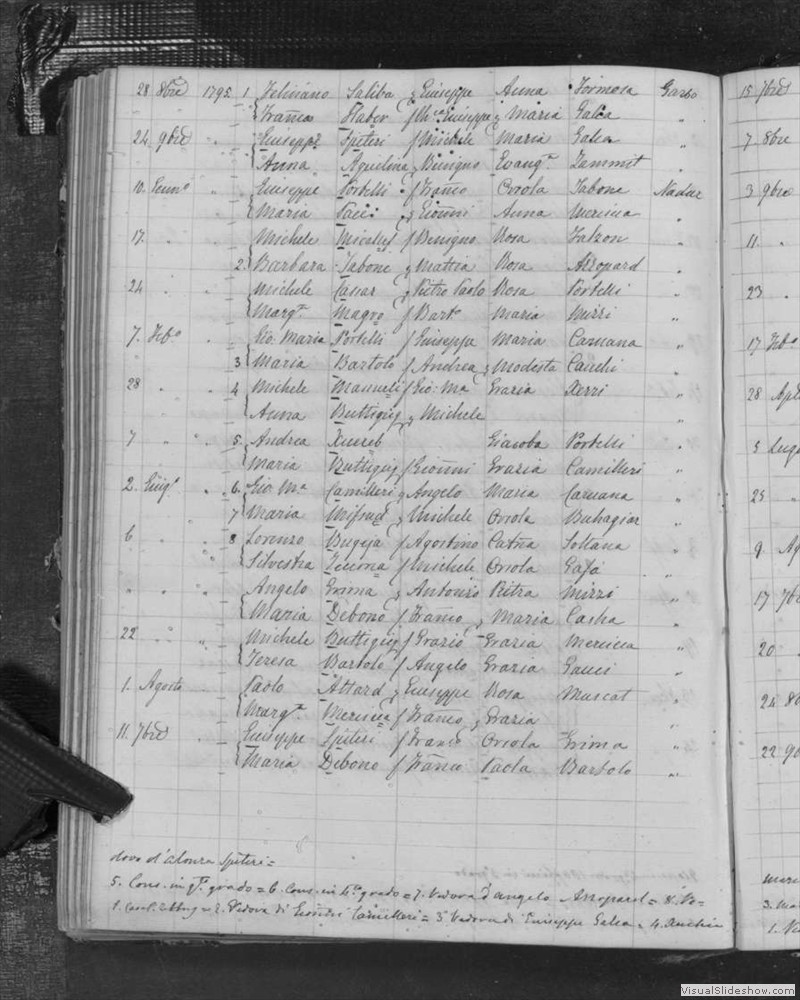 28 8bre 1795 1 Feliciano Saliba Giuseppe Anna Formosa Garbo
Franca Staber Giuseppe Maria Galea "
24 9bre " Giuseppe Spiteri Michele Maria Galea "
Anna Aquilina Benigno Evang.a Zammit "
10. Genn.o " Giuseppe Portelli Franco Orsola Tabone Nadur
Maria Gauci Gionni Anna Mercieca "
17. " Michele Micallef Benigno Rosa Falzon "
2. Barbara Tabone Mattia Rosa Attopard "
24 " Michele Cassar Pietro Paolo Rosa Portelli "
Marg.ta Magro Bart.o Maria Mizzi "
7. Feb.o " Gio. Maria Portelli Giuseppe Maria Caruana "
3 Maria Bartolo Andrea Modesta Cauchi "
28 " 4 Michele Gio. M.a Grazia Xerri "
Anna Buttigieg Michele "
7 " 5. Andrea Xuereb Giacoba Portelli "
Maria Buttigieg Gionni Grazia Camilleri "
2. Giug.o " 6. Gio. M.a Camilleri Angelo Maria Caruana "
7 Maria Mifsud Michele Orsola Buhagiar "
6 " 8 Lorenzo Bugeja Agostino Cat.na Soltana "
Silvestra Michele Orsola Gafà "
" " Angelo Grima Antonio Pietra Mizzi "
Maria Debono Franco Maria Casha "
22 " Michele Buttigieg Grazio Grazia Mercieca "
Teresa Bartolo Angelo Grazia Gauci "
1. Agosto " Paolo Attard Giuseppe Rosa Muscat "
Marg.ta Mercieca Franco Grazia "
11. 7bre " Giuseppe Spiteri Franco Orsola Grima "
Maria Debono Franco Paola Bartolo "
Spiteri =
5. Cons. in grado = 6. Cons. in 4.o grado = 7. Vedova d'Angelo Attopard = 8. Ve=
2. Vedova di Gionni Camilleri = 3. Vedova di Giuseppe Galea = 4.
15 7bre
7 8bre
3 9bre
11. "
23 "
17 Feb.o
28 Aple
5 Lug
25 "
9. Ag
17 7b
20
24 8b
22 9b
3. Ma
VisualSlideshow.com